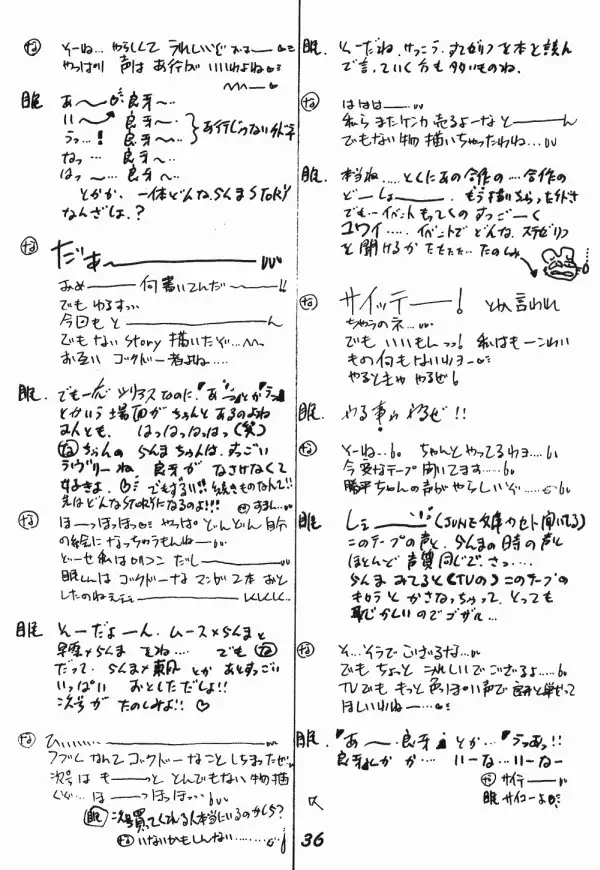 な そーね… やらしくて うれしいぐ
やっぱり 声は あ行が いいわよね
眠 あ〜 良牙〜…
い〜 良牙〜…
うっ…! 良牙〜…
なっ… 良牙〜…
はっ〜… 良牙〜…
あ行じゃない
とかか、一体どんならんま STORY
なんざしょ.?
な だぁ〜
あぁ 何書いてんだ〜!!
でも ゆるすっ…
今回も と ん
でもない Story 描いたぞ…
お互い ゴクドー者よね….
眠. でも一応 シリアスなのに『あっ』とか『うっ』
とかいう場面が ちゃんと あるのよね
みんとも. はっはっはっはっ(笑)
な ちゃんの らんまちゃんは、すっごい
ラヴリーね、良牙が なさけなくて
好きよ. でもずるい!! 続きものなんて!!
先はどんなSTORYになるのよ!!! な すまん…
な ほーっほっほっ やっぱ どんどん 自分
の絵に なっちゃうもんねー
どーせ 私は ロリコン だし
眠しんは ゴクドーな マンガ 2本 おと
したのねぇ
眠 そーだよーん. ムース×らんまと
早雲×らんま でね… でも な
だって. らんま×東風 とか あとすっごい
いっぱい おとしただしょ!!
次号が たのしみよ!! ♡
な ひぃ……
アブなくて ゴクドーな ことしちまったぜ
次号は もーーっと とんでもない物描
くぞ… ほーーっほっほ…
眠 次号買ってくれる人本当にいるのかしら?
な いないかもしんない…
眠. そーだね. けっこう. すてゼリフを本と読ん
で言っていく方も 多いものね.
な ははは—…
私ら またケンカ売るよーな と ん
でもない物 描いちゃったわね…
眠. 本当ね…. とくにあの合作の… 合作の
どーしょ . もう描いちゃった
でも… イベント もってくの すっごーく
コワイ….. イベントで どんな. ステゼリフ
を聞けるか たたた… たのしみ
な サイッテーー! とか 言われ
ちゃうのネ…
でも いいもんっっ! 私はもーこわい
もの何もないわヨー
やるときゃ やるぜ!
眠. やる事はやるぜ!!
な そーね.. ちゃんとやってるわヨ….
今 変なテープ 聞いてます…..
勝平ちゃんの声がやらしいぞ…..
眠 しぇーー (JUNE文庫カセット聞いてる)
このテープの声と. らんまの時の声と
ほとんど 声質 同じで. さっ….
らんま みてると(TVの)このテープの
キャラと かさなっちゃって. とっても
恥じかしいのでゴザル…
な そ… そうで ござるな…
でも ちょっと うれしいでござるよ…..
TVでも もっと 色っぽい声で 良牙と
ほしいわねー…
眠. 『あ〜.良牙』とか…『うっあっ!!
良牙』とか か… いーな… いーなー
な サイテー—
眠 サイコーよ
36